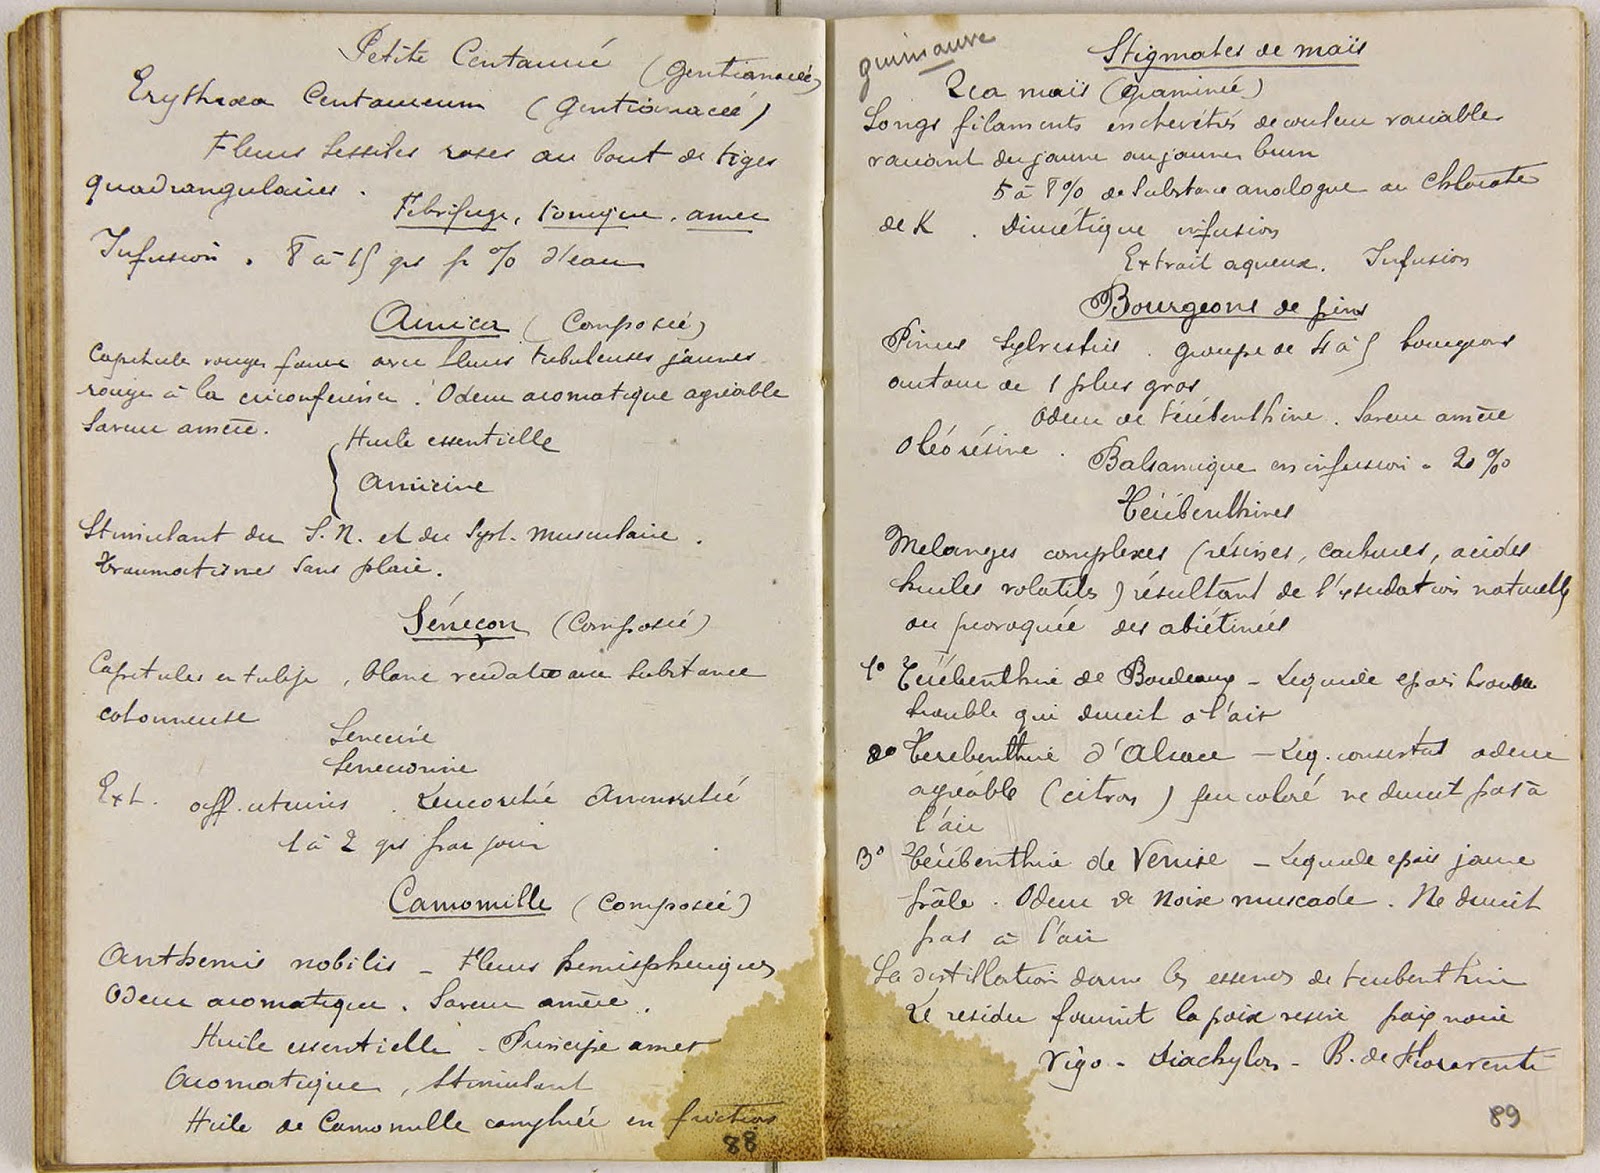 Petite Centauré (Gentianacée)
Erythraea Centaureum (Gentianacée)
Fleurs sessiles roses au bout de tiges
quadrangulaires.
Fébrifuge, tonique, amer
Infusion. 8 à 15 grs p % d'eau
Arnica (Composée)
Capitule rouge jaune avec fleurs tubuleuses jaunes
rouge à la circonférence. Odeur aromatique agréable
Saveur amère.
Huile essentielle
Arnicine
Stimulant du S.N. et du Syst. musculaire.
Traumatismes sans plaie.
Séneçon (Composée)
Capitules en tulipe, blanc verdatre avec substance
cotonneuse
Senecine
Senecionine
Ext. aff. uterines. Leucorrhé Amenorrhé
1 à 2 grs par jour
Camomille (Composée)
Anthemis nobilis - Fleurs hemispheriques
Odeur aromatique. Saveur amère.
Huile essentielle - Principe amer
Aromatique, Stimulant
Huile de Camomille camphrée en frictions
88
guimauve
Stigmates de maïs
Zea maïs (Graminée)
Longs filaments enchevétrés de couleur variable
variant du jaune au jaune brun
5 à 8% de substance analogue au Chlorate
de K. Diurétique infusion
Extrait aqueux. Infusion
Bourgeons de pins
Pinus Sylvestris. groupe de 4 à 5 bourgeons
autour de 1 plus gros
Odeur de térébenthine. Saveur amère
Oléorésine. Balsamique en infusion. 20 %
Térébenthines
Melanges complexes (résines, carbures, acides
huiles volatiles) résultant de l'exsudation naturelle
ou provoquée des abiétinées
1° Térébenthine de Bordeaux - Liquide epais trouble
trouble qui durcit à l'air
2° Terebenthine d'Alsace - Liq. odeur
agréable (citron) peu coloré ne durcit pas à
l'air
3° Térébenthine de Venise - Liquide epais jaune
pâle. Odeur de Noix muscade. Ne durcit
pas à l'air
La distillation donne les essences de terebenthine
Le residu fournit la poix resine poix noire
Vigo - Diachylon - B. de Fioraventi
89